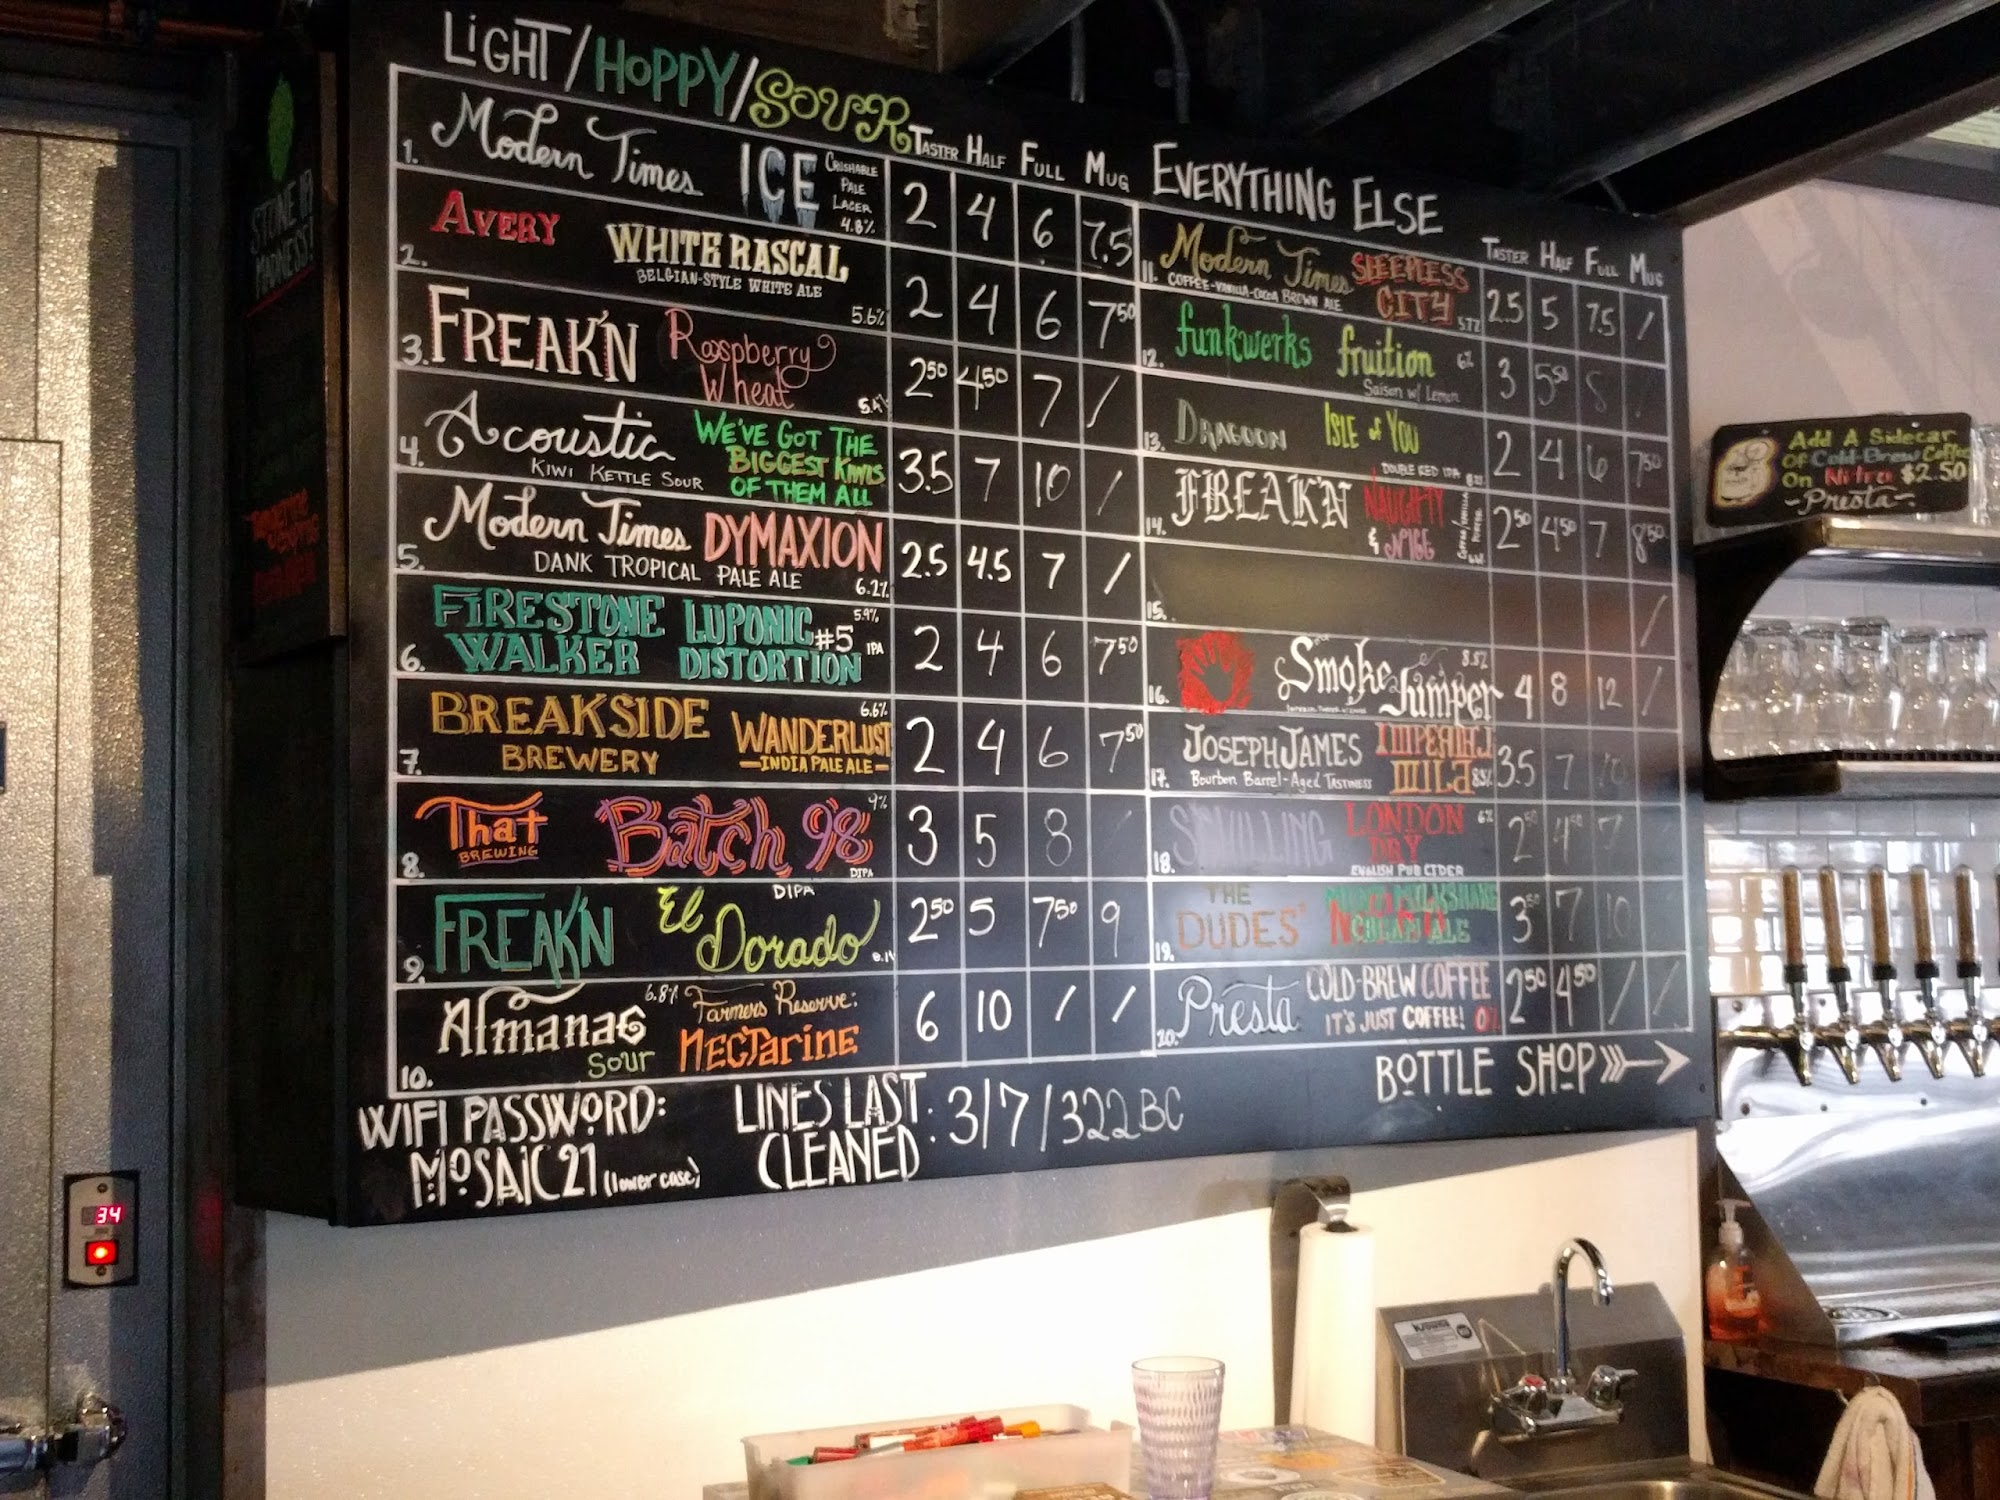 LIGHT/HOPPY/SOUR
TASTER HALF FULL MUG
1. Modern Times ICE CRUSHABLE PALE LAGER 4.8% 2 4 6 7.5
2. AVERY WHITE RASCAL 2 4 6 7.50
BELGIAN-STYLE WHITE ALE
5.6%
3. FREAK'N Raspberry Wheat 2.50 4.50 7 /
4. Acoustic WE'VE GOT THE BIGGEST KIWIS OF THEM ALL 3.5 7 10 /
KIWI KETTLE SOUR
5. Modern Times DYMAXION 2.5 4.5 7 /
DANK TROPICAL PALE ALE 6.2%
6. FIRESTONE WALKER LUPONIC DISTORTION #5 5.9% IPA 2 4 6 7.50
7. BREAKSIDE BREWERY WANDERLUST 6.6% 2 4 6 7.50
-INDIA PALE ALE-
8. That BREWING Batch 98 9% DIPA 3 5 8 /
9. FREAK'N El Dorado DIPA 2.50 5 7.50 9
10. Almanac SOUR 6.8% Farmers Reserve: NECTarine 6 10 / /
EVERYTHING ELSE
TASTER HALF FULL MUG
11. Modern Times SLEEPLESS CITY 2.5 5 7.5 /
COFFEE-VANILLA-COCOA BROWN ALE
12. funkwerks fruition 6% 3 5.50 8 /
Saison w/ Lemon
13. DRAGOON ISLE of YOU 2 4 6 7.50
DOUBLE RED IPA
14. FREAK'N NAUGHTY & NICE 2.50 4.50 7 8.50
15. /
16. Smoke Jumper 8.5% 4 8 12 /
17. JOSEPH JAMES IMPERIAL MILD 3.5 7 10
Bourbon Barrel-Aged Tastiness 8.5%
18. LONDON DRY 6% 2.50 4.50 7
ENGLISH PUB CIDER
19. THE DUDES' 3.50 7 10
20. Presta COLD-BREW COFFEE 2.50 4.50 / /
IT'S JUST COFFEE! 0%
WIFI PASSWORD:
MOSAIC21 (lower case)
LINES LAST CLEANED: 3/7/322BC
BOTTLE SHOP
Add A Sidecar
Of Cold-Brew Coffee
On Nitro $2.50
-Presta-
34